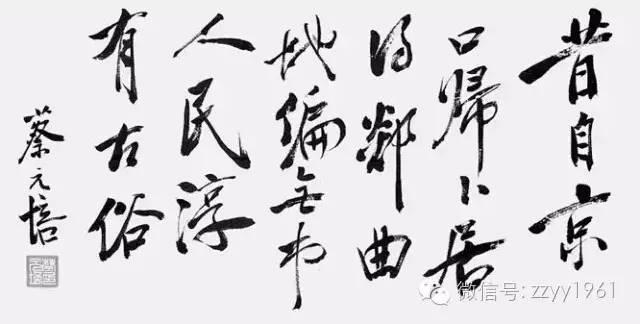 昔自京
口歸卜居
得鄰曲
地編無市
人民淳
有古俗
蔡元培
微信号: zzyy1961